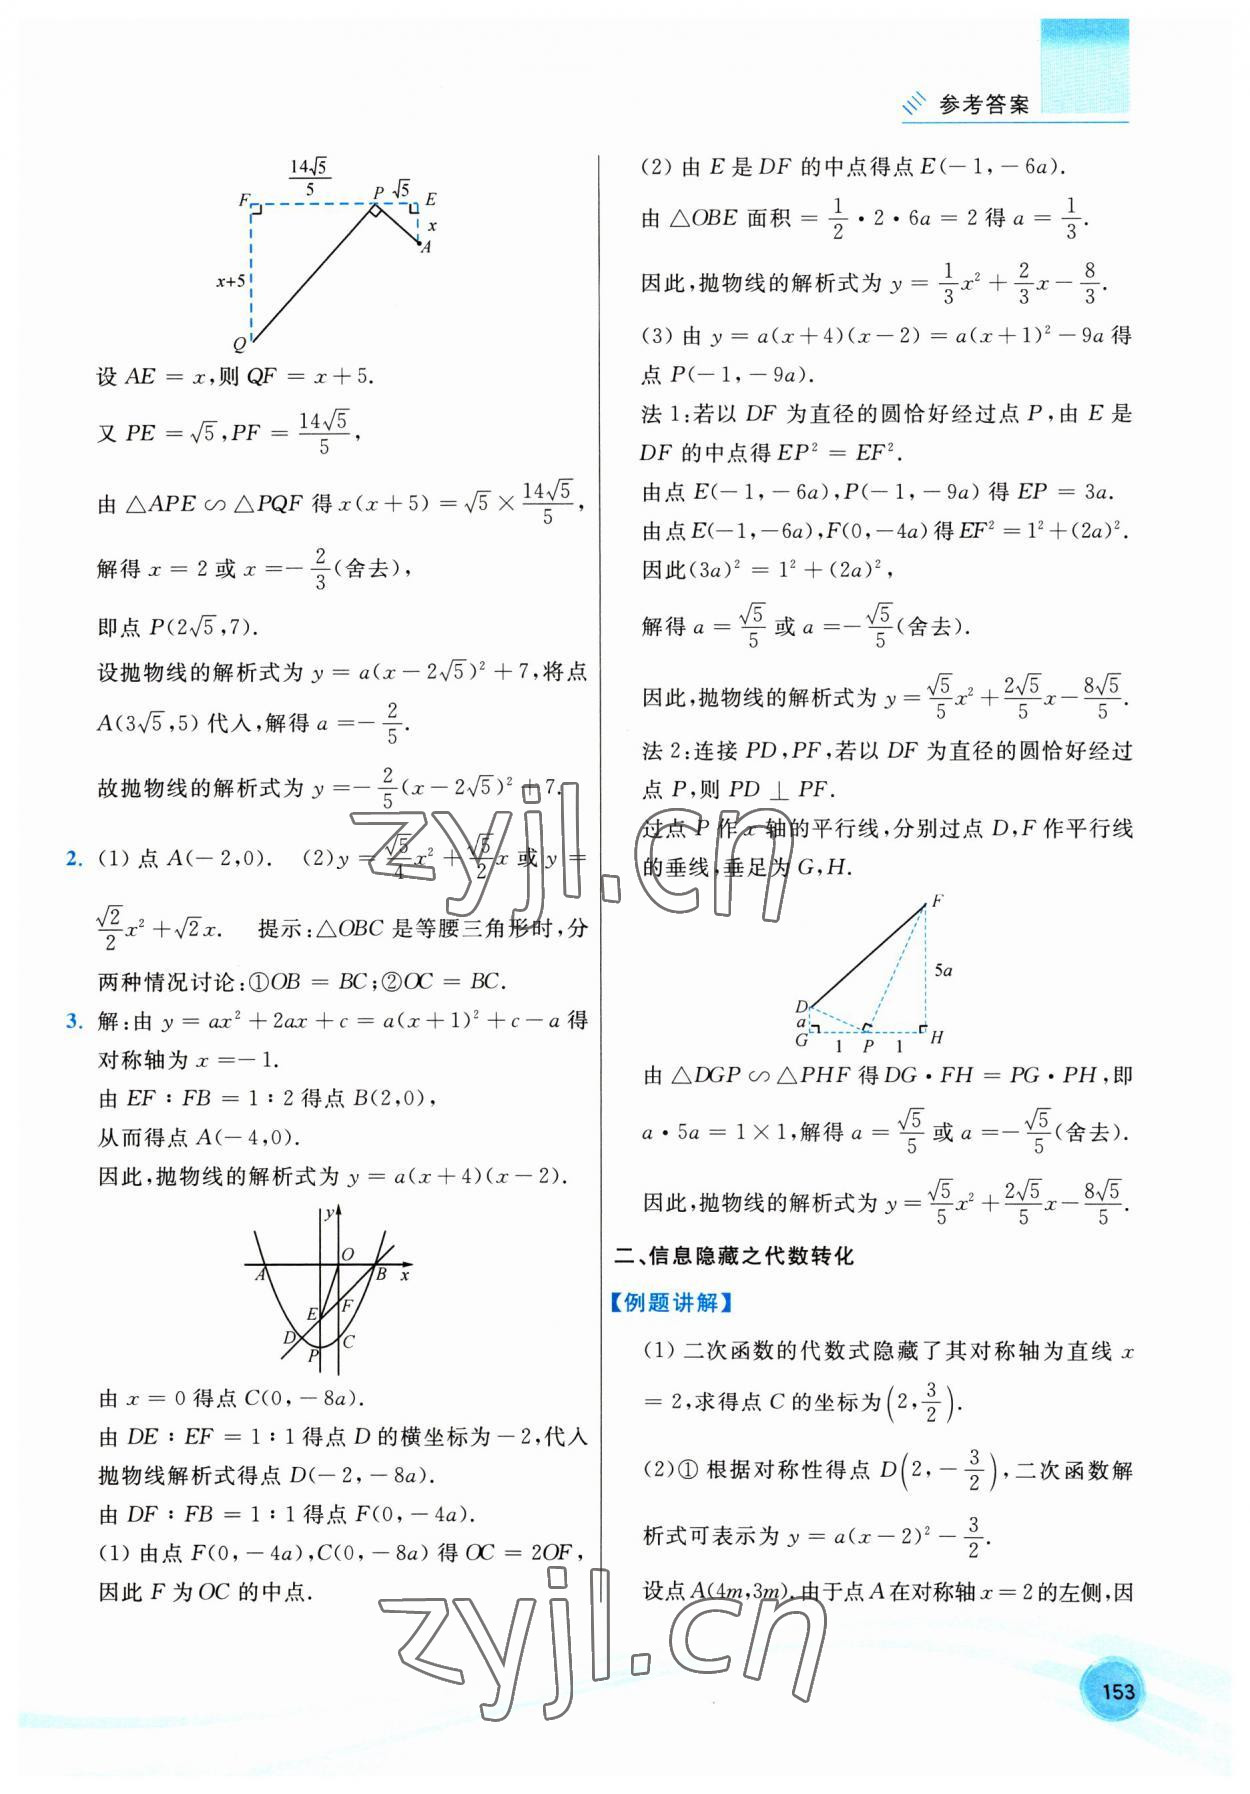 参考答案
14√5/5
F P √5 E
x
A
x+5
Q
设 AE = x,则 QF = x+5.
又 PE = √5,PF = 14√5/5,
由 △APE ∽ △PQF 得 x(x+5) = √5 × 14√5/5,
解得 x = 2 或 x =- 2/3 (舍去),
即点 P(2√5,7).
设抛物线的解析式为 y = a(x-2√5)²+7,将点
A(3√5,5) 代入,解得 a =- 2/5.
故抛物线的解析式为 y =- 2/5 (x-2√5)²+7.
2. (1) 点 A(-2,0). (2)y = √5/4 x² + √5/2 x 或 y =
√2/2 x²+√2x. 提示:△OBC 是等腰三角形时,分
两种情况讨论:①OB = BC;②OC = BC.
3. 解:由 y = ax²+2ax+c = a(x+1)²+c-a 得
对称轴为 x =-1.
由 EF : FB = 1 : 2 得点 B(2,0),
从而得点 A(-4,0).
因此,抛物线的解析式为 y = a(x+4)(x-2).
y
A O B x
E F
D P C
由 x = 0 得点 C(0,-8a).
由 DE : EF = 1 : 1 得点 D 的横坐标为-2,代入
抛物线解析式得点 D(-2,-8a).
由 DF : FB = 1 : 1 得点 F(0,-4a).
(1) 由点 F(0,-4a),C(0,-8a) 得 OC = 2OF,
因此 F 为 OC 的中点.
(2) 由 E 是 DF 的中点得点 E(-1,-6a).
由 △OBE 面积 = 1/2 · 2 · 6a = 2 得 a = 1/3.
因此,抛物线的解析式为 y = 1/3 x² + 2/3 x - 8/3.
(3) 由 y = a(x+4)(x-2) = a(x+1)²-9a 得
点 P(-1,-9a).
法 1:若以 DF 为直径的圆恰好经过点 P,由 E 是
DF 的中点得 EP² = EF².
由点 E(-1,-6a),P(-1,-9a) 得 EP = 3a.
由点 E(-1,-6a),F(0,-4a) 得 EF² = 1²+(2a)².
因此(3a)² = 1²+(2a)²,
解得 a = √5/5 或 a =- √5/5 (舍去).
因此,抛物线的解析式为 y = √5/5 x² + 2√5/5 x - 8√5/5.
法 2:连接 PD,PF,若以 DF 为直径的圆恰好经过
点 P,则 PD ⊥ PF.
过点 P 作 x 轴的平行线,分别过点 D,F 作平行线
的垂线,垂足为 G,H.
F
5a
D
a
G 1 P 1 H
由 △DGP ∽ △PHF 得 DG · FH = PG · PH,即
a · 5a = 1×1,解得 a = √5/5 或 a =- √5/5 (舍去).
因此,抛物线的解析式为 y = √5/5 x² + 2√5/5 x - 8√5/5.
二、信息隐藏之代数转化
【例题讲解】
(1) 二次函数的代数式隐藏了其对称轴为直线 x
= 2,求得点 C 的坐标为(2, 3/2).
(2)① 根据对称性得点 D(2,- 3/2),二次函数解
析式可表示为 y = a(x-2)² - 3/2.
设点 A(4m,3m).由于点 A 在对称轴 x = 2 的左侧,因
zyjl.cn
zyjl.cn
153